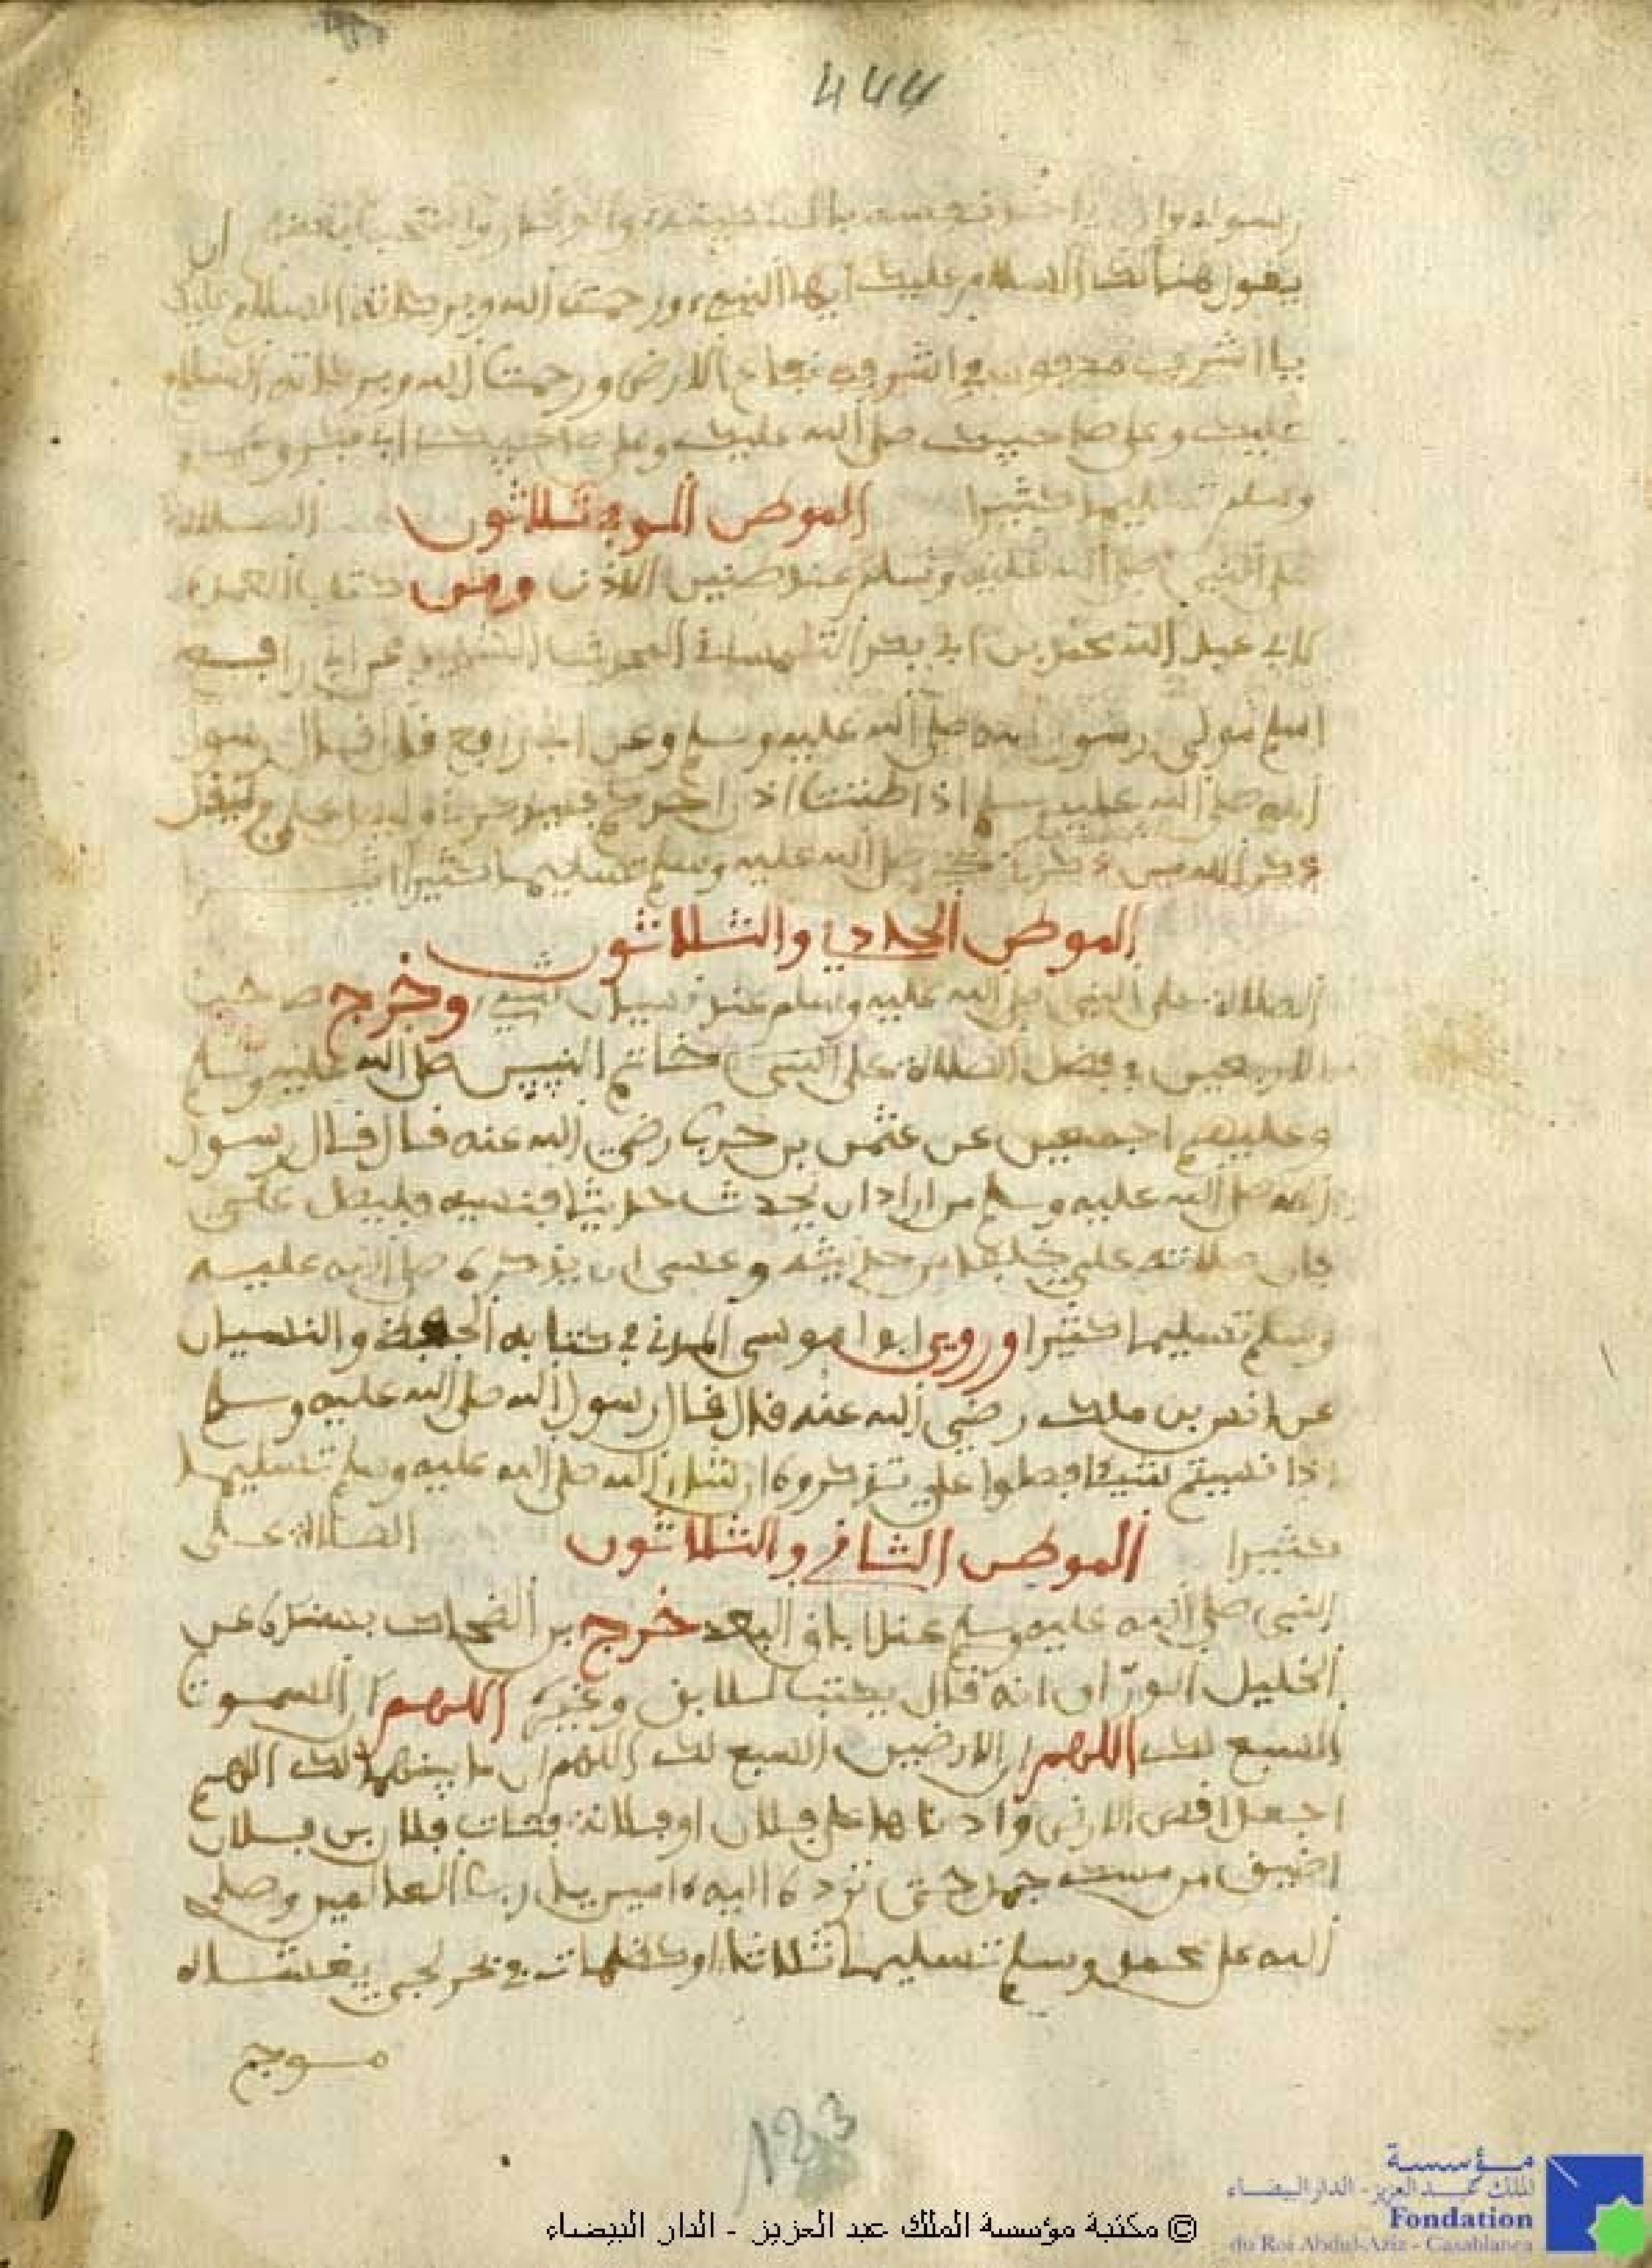 444
يقول هنالك السلام عليك ايها النبيء ورحمت الله وبركاته السلام عليك
يا اشرف مدفون في اشرف بقاع الارض ورحمت الله وبركاته السلام
عليك وعلى صاحبيك صلى الله عليك وعلى صاحبيك ابي بكر وعمر
وسلم تسليما كثيرا الموطن الموفي ثلاثون الصلاة
على النبي صلى الله عليه وسلم عند طنين الاذن ومن كتاب العمدة
لابي عبد الله محمد بن ابي بكر التلمساني عن ابي رافع
اسلم مولى رسول الله صلى الله عليه وسلم وعن ابي رافع قال قال رسول
الله صلى الله عليه وسلم اذا طنت اذن احدكم فليقل
ذكر الله من ذكرني صلى الله عليه وسلم تسليما كثيرا
الموطن الحادي والثلاثون
الصلاة على النبي صلى الله عليه وسلم عند نسيان الشيء وخرج صاحب
الاربعين في فضل الصلاة على النبي خاتم النبيين صلى الله عليه وسلم
وعليهم اجمعين عن عثمن بن حرب رضي الله عنه قال قال رسول
الله صلى الله عليه وسلم من اراد ان يحدث حديثا فنسيه فليصل علي
فان صلاته علي خلفا من حديثه وعسى ان يذكره صلى الله عليه
وسلم تسليما كثيرا وروى ابوا موسى المدني في كتابه الحفظ والنسيان
عن انس بن ملك رضي الله عنه قال قال رسول الله صلى الله عليه وسلم
اذا نسيتم شيئا فصلوا علي تذكروه ان شاء الله صلى الله عليه وسلم تسليما
كثيرا الموطن الثاني والثلاثون الصلاة على
النبي صلى الله عليه وسلم عند اباق العبد خرج بن الضحاك بسنده عن
الخليل الوراق انه قال يكتب للابق وغيره اللهم ان السموت
السبع لك اللهم ان الارضين السبع لك اللهم ان ما بينهما لك اللهم
اجعل اقصى الارض وادناها على فلان او فلانة فتات فلان بن فلان
اضيق من مسك جمل حتى ترده اليه ءامين يا رب العالمين وصلى
الله على محمد وسلم تسليما ثلاثا او كظلمات في بحر لجي يغشاه
موج
123
© مكتبة مؤسسة الملك عبد العزيز - الدار البيضاء
مؤسسة
الملك عبد العزيز - الدار البيضاء
Fondation
du Roi Abdul-Aziz - Casablanca